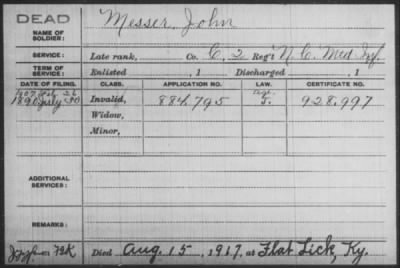 DEAD
NAME OF SOLDIER: Messer, John
SERVICE: Late rank, Co. C, 2 Reg't N. C. Mtd Inf.
TERM OF SERVICE: Enlisted , 1 Discharged , 1
DATE OF FILING. CLASS. APPLICATION NO. LAW. CERTIFICATE NO.
1907 Feb. 26 Age.
1890 July 30 Invalid, 884,795 J. 928,997
Widow,
Minor,
ADDITIONAL SERVICES:
REMARKS:
Died Aug. 15, 1917, at Flat Lick, Ky.